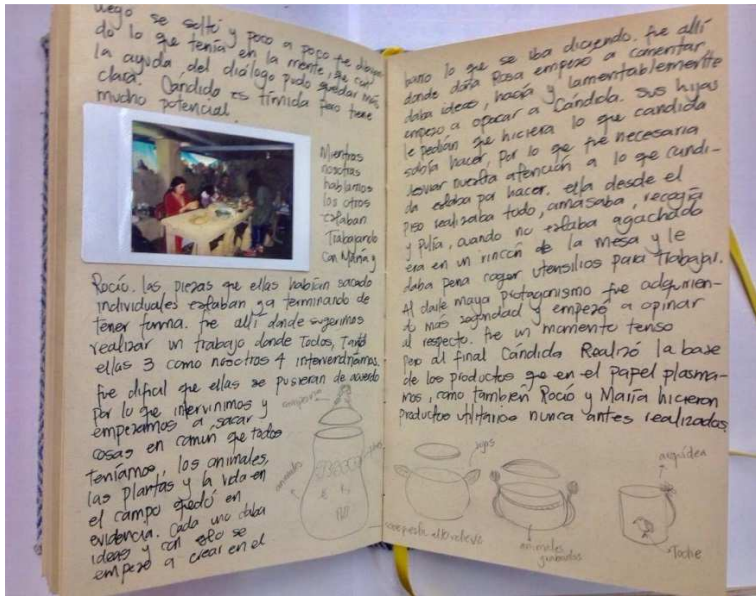 luego se soltó y poco a poco fue dibujan-
do lo que tenía en la mente, que con
la ayuda del diálogo pudo quedar más
clara. Cándida es tímida pero tiene
mucho potencial.
Mientras
nosotras
hablamos
los otros
estaban
Trabajando
con María y
Rocío. las piezas que ellas habían sacado
individuales estaban ya terminando de
tener forma. fue allí donde sugerimos
realizar un trabajo donde Todos, Tanto
ellas 3 como nosotros 4 interveníamos.
fue dificil que ellas se pusieran de acuerdo
por lo que intervinimos y
empezamos a sacar
cosas en comun que todos
teníamos, los animales,
las plantas y la vida en
el campo quedó en
evidencia. Cada uno daba
ideas y con esto se
empezó a crear en el
animales
barro lo que se iba diciendo. fue allí
donde doña Rosa empezó a comentar,
daba ideas, hacía y lamentablemente
empezó a opacar a Cándida. Sus hijas
le pedían que hiciera lo que candida
sabía hacer, por lo que fue necesaria
desviar nuestra atención a lo que candi-
da estaba por hacer. ella desde el
piso realizaba todo, amasaba, recogía
y pulía, cuando no estaba agachada
era en un rincón de la mesa y le
daba pena coger utensilios para Trabajar.
Al darle mayor protagonismo fue adquirien-
do más seguridad y empezó a opinar
al respecto. fue un momento tenso
pero al final Cándida Realizó la base
de los productos que en el papel plasma-
mos, como también Rocío y María hicieron
productos utilitarios nunca antes realizados
animales
Toche